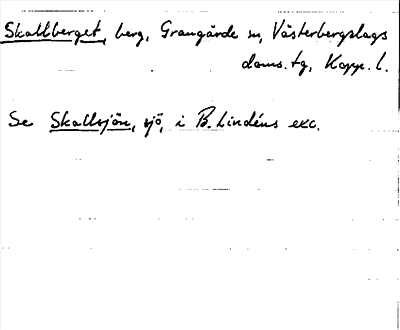 Skallberget, berg, Grangärde sn, Västerbergslags
doms. tg, Kopp. l.
Se Skallsjön, sjö, i B. Lindéns exc.